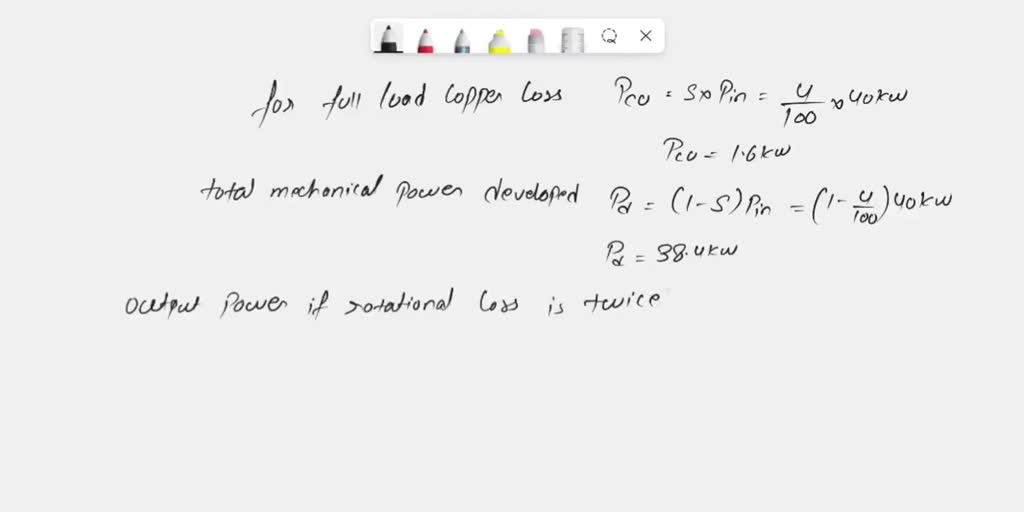 for full load copper loss Pcu = S x Pin = 4/100 x 40kw
Pcu = 1.6kw
total mechanical power developed Pd = (1-S) Pin = (1 - 4/100) 40kw
Pd = 38.4kw
output power if rotational loss is twice